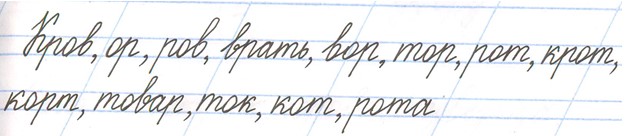 Кров, ор, ров, врать, вор, тор, рот, крот,
корт, товар, ток, кот, рота